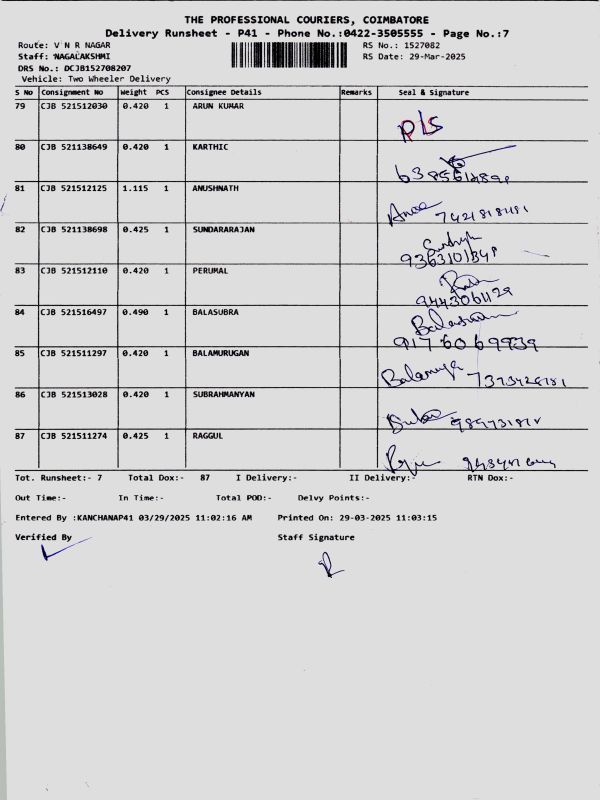 THE PROFESSIONAL COURIERS, COIMBATORE
Delivery Runsheet - P41 - Phone No.:0422-3505555 - Page No.:7
Route: V N R NAGAR RS No.: 1527082
Staff: NAGALAKSHMI RS Date: 29-Mar-2025
DRS No.: DCJB152708207
Vehicle: Two Wheeler Delivery
S No Consignment No Weight PCS Consignee Details Remarks Seal & Signature
79 CJB 521512030 0.420 1 ARUN KUMAR
80 CJB 521138649 0.420 1 KARTHIC
81 CJB 521512125 1.115 1 ANUSHNATH
82 CJB 521138698 0.425 1 SUNDARARAJAN
83 CJB 521512110 0.420 1 PERUMAL
9443061129
84 CJB 521516497 0.490 1 BALASUBRA
9176069939
85 CJB 521511297 0.420 1 BALAMURUGAN
86 CJB 521513028 0.420 1 SUBRAHMANYAN
87 CJB 521511274 0.425 1 RAGGUL
Tot. Runsheet:- 7 Total Dox:- 87 I Delivery:- II Delivery:- RTN Dox:-
Out Time:- In Time:- Total POD:- Delvy Points:-
Entered By :KANCHANAP41 03/29/2025 11:02:16 AM Printed On: 29-03-2025 11:03:15
Verified By Staff Signature